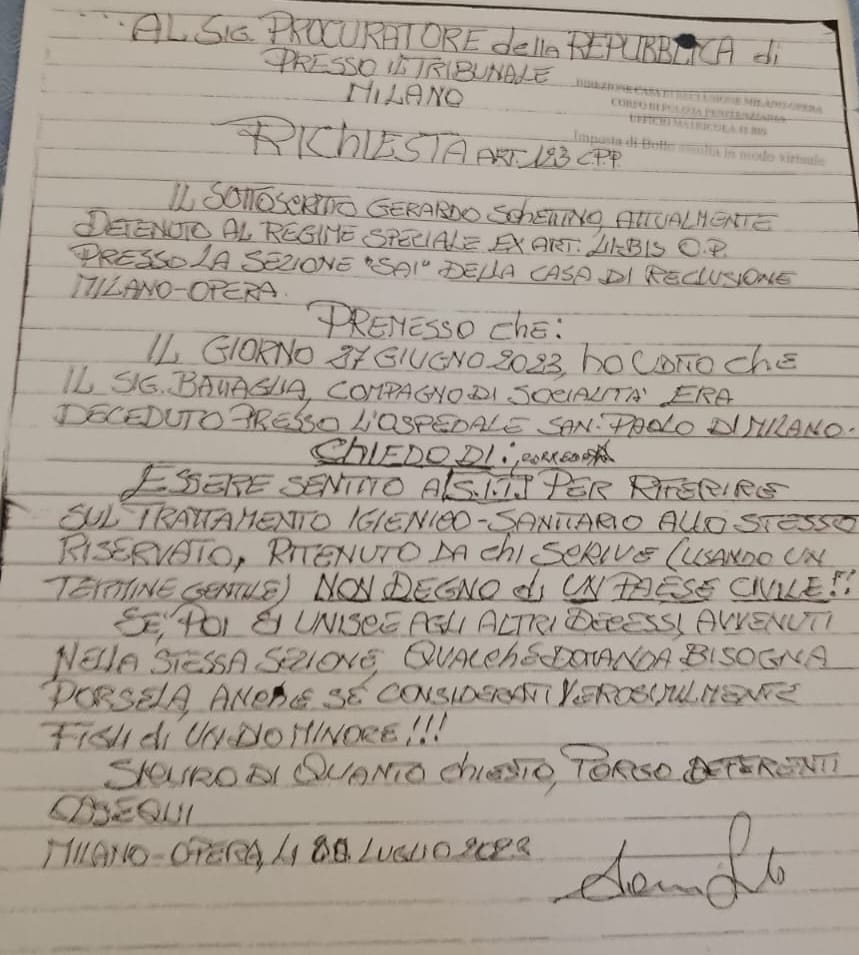 AL SIG. PROCURATORE della REPUBBLICA di
PRESSO IL TRIBUNALE
MILANO
DIREZIONE CASA DI RECLUSIONE MILANO OPERA
CORPO DI POLIZIA PENITENZIARIA
UFFICIO MATRICOLA 41 BIS
Imposta di Bollo assolta in modo virtuale
RICHIESTA ART. C.P.P.
IL SOTTOSCRITTO GERARDO SCHETTINO, ATTUALMENTE
DETENUTO AL REGIME SPECIALE EX ART. 41-BIS O.P.
PRESSO LA SEZIONE "SAI" DELLA CASA DI RECLUSIONE
MILANO-OPERA.
PREMESSO ChE:
IL GIORNO 27 GIUGNO 2023, hO UDITO ChE
IL SIG. BATTAGLIA, COMPAGNO DI SOCIALITA' ERA
DECEDUTO PRESSO L'OSPEDALE SAN. PAOLO DI MILANO.
ChIEDO DI:
ESSERE SENTITO A S.I.T. PER RIFERIRE
SUL TRATTAMENTO IGIENICO-SANITARIO ALLO STESSO
RISERVATO, RITENUTO DA ChI SCRIVE (USANDO UN
TERMINE GENTILE) NON DEGNO di UN PAESE CIVILE!!
SE, POI SI UNISCE AGLI ALTRI DECESSI AVVENUTI
NELLA STESSA SEZIONE, QUALChE DOMANDA BISOGNA
PORSELA, ANChE SE CONSIDERATI VEROSIMILMENTE
FIGLI di UN DIO MINORE!!!
SICURO DI QUANTO ChIESTO, PORGO DEFERENTI
OSSEQUI
MILANO-OPERA, LI LUGLIO 2023